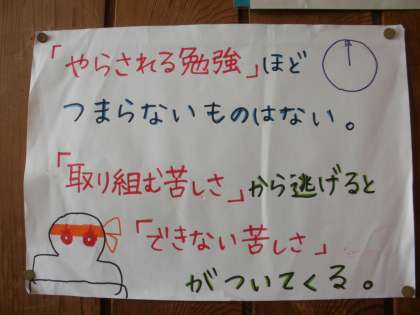 「やらされる勉強」ほど
つまらないものはない。
「取り組む苦しさ」から逃げると
「できない苦しさ」
がついてくる。